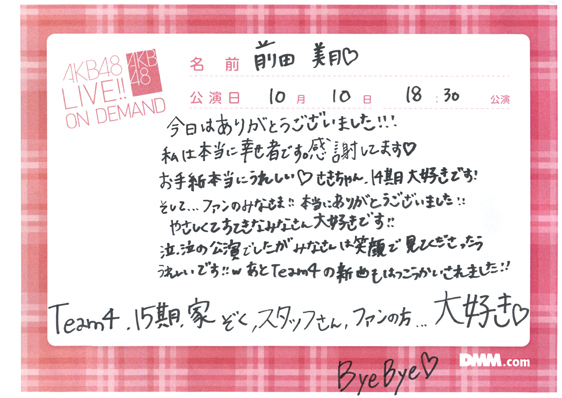 AKB48
LIVE!!
ON DEMAND
AKB
48
名前 前田 美月♡
公演日 10月 10日 18:30 公演
今日はありがとうございました!!!
私は本当に幸せ者です。感謝してます♡
お手紙本当にうれしい♡ さきちゃん、14期大好きです!
そして...ファンのみなさま!! 本当にありがとうございました!!
やさしくてすてきなみなさん大好きです!!
泣、泣の公演でしたがみなさんは笑顔で見てくださったら
うれしいです!!w あとTeam4の新曲もはっこうかいされました!!
Team4、15期、家ぞく、スタッフさん、ファンの方...大好き♡
DMM.com
ByeBye♡